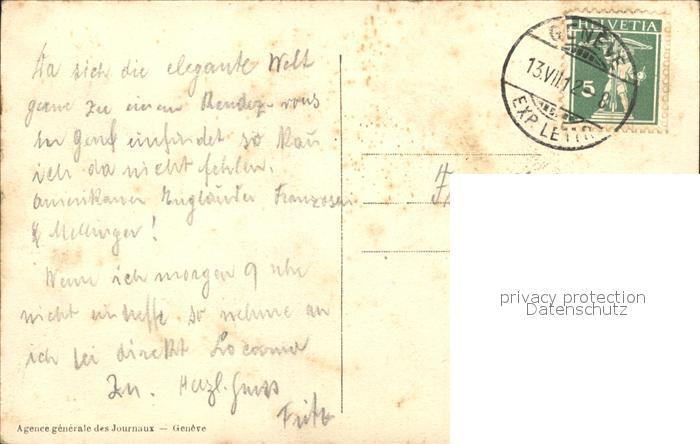 Da sich die elegante Welt
gerne zu einem Rendez-vous
in Genf einfindet so kan
ich da nicht fehlen.
Amerikaner Engländer Franzosen
& Mellinger!
Wenn ich morgen 9 Uhr
nicht eintreffe so nehme an
ich sei direkt
Herzl. Gruss
Fritz
Agence générale des Journaux — Genève
HELVETIA
5
GENÈVE
13.VII.12
EXP. LETTR.
privacy protection
Datenschutz